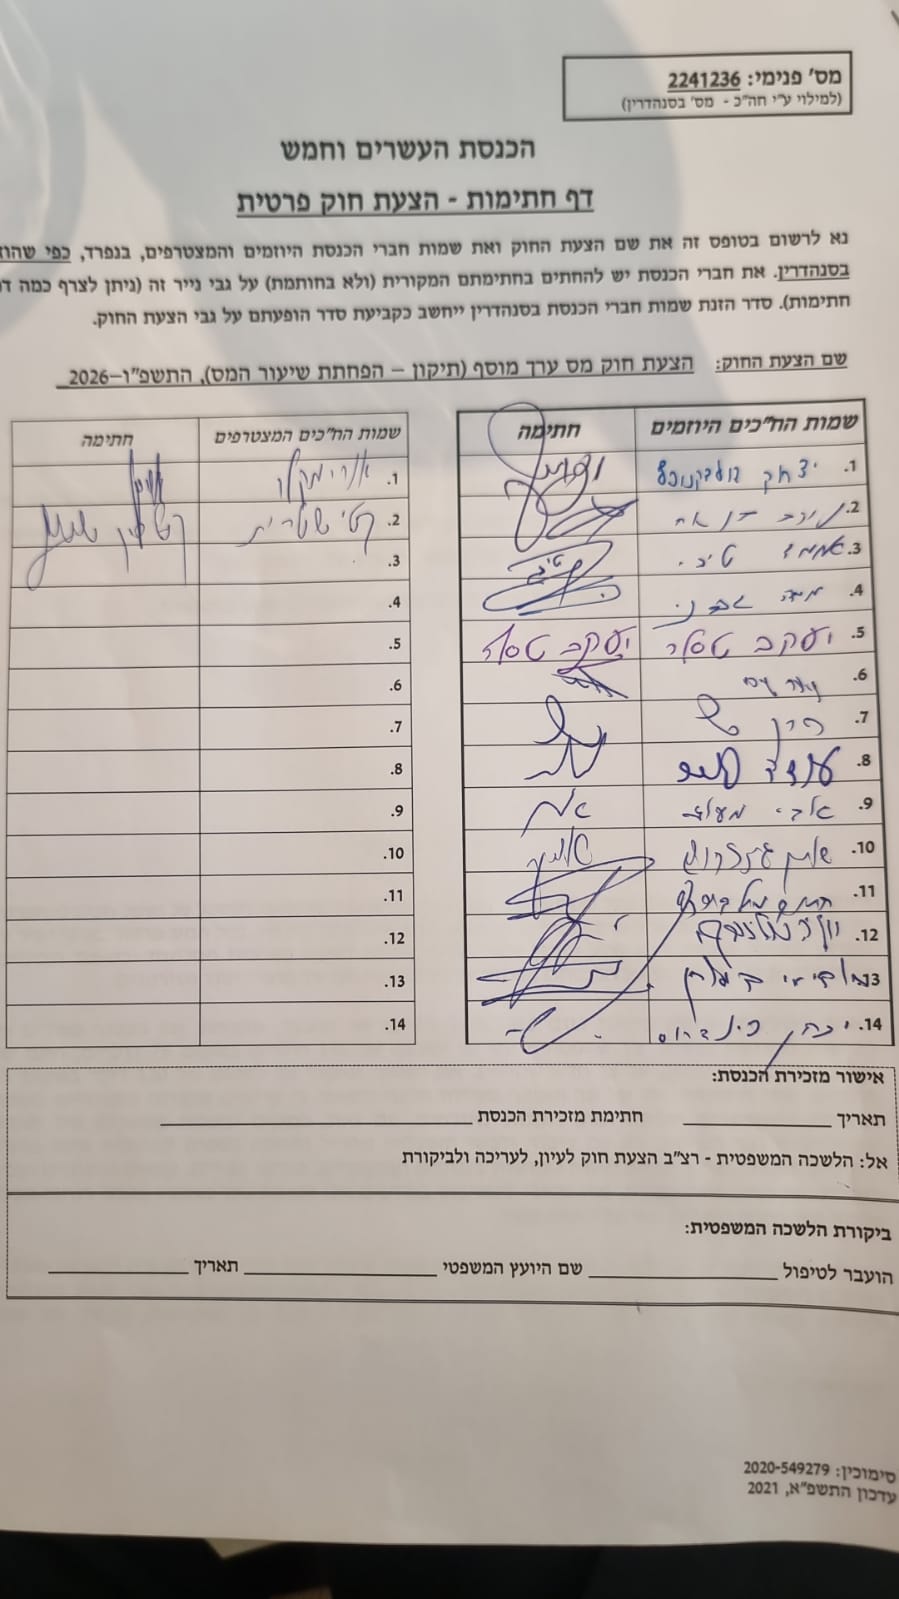 מס' פנימי: 2241236
(למילוי ע"י חה"כ - מס' בסנהדרין)
הכנסת העשרים וחמש
דף חתימות - הצעת חוק פרטית
נא לרשום בטופס זה את שם הצעת החוק ואת שמות חברי הכנסת היוזמים והמצטרפים, בנפרד, כפי
בסנהדרין. את חברי הכנסת יש להחתים בחתימתם המקורית (ולא בחותמת) על גבי נייר זה (ניתן לצרף כמה
חתימות). סדר הזנת שמות חברי הכנסת בסנהדרין ייחשב כקביעת סדר הופעתם על גבי הצעת החוק.
שם הצעת החוק: הצעת חוק מס ערך מוסף (תיקון – הפחתת שיעור המס), התשפ"ו–2026
שמות הח"כים היוזמים חתימה
1. יצחק גולדקנופף
2.
3. אחמד טיבי
4.
5. יעקב טסלר יעקב טסלר
6.
7.
8. עודד פורר
9. אבי מעוז
10.
11.
12.
13. ולדימיר בליאק
14. יצחק פינדרוס
שמות הח"כים המצטרפים חתימה
1. אורי מקלב
2. קטי שטרית
3.
4.
5.
6.
7.
8.
9.
10.
11.
12.
13.
14.
אישור מזכירת הכנסת:
תאריך חתימת מזכירת הכנסת
אל: הלשכה המשפטית - רצ"ב הצעת חוק לעיון, לעריכה ולביקורת
ביקורת הלשכה המשפטית:
הועבר לטיפול שם היועץ המשפטי תאריך
סימוכין: 2020-549279
עדכון התשפ"א, 2021